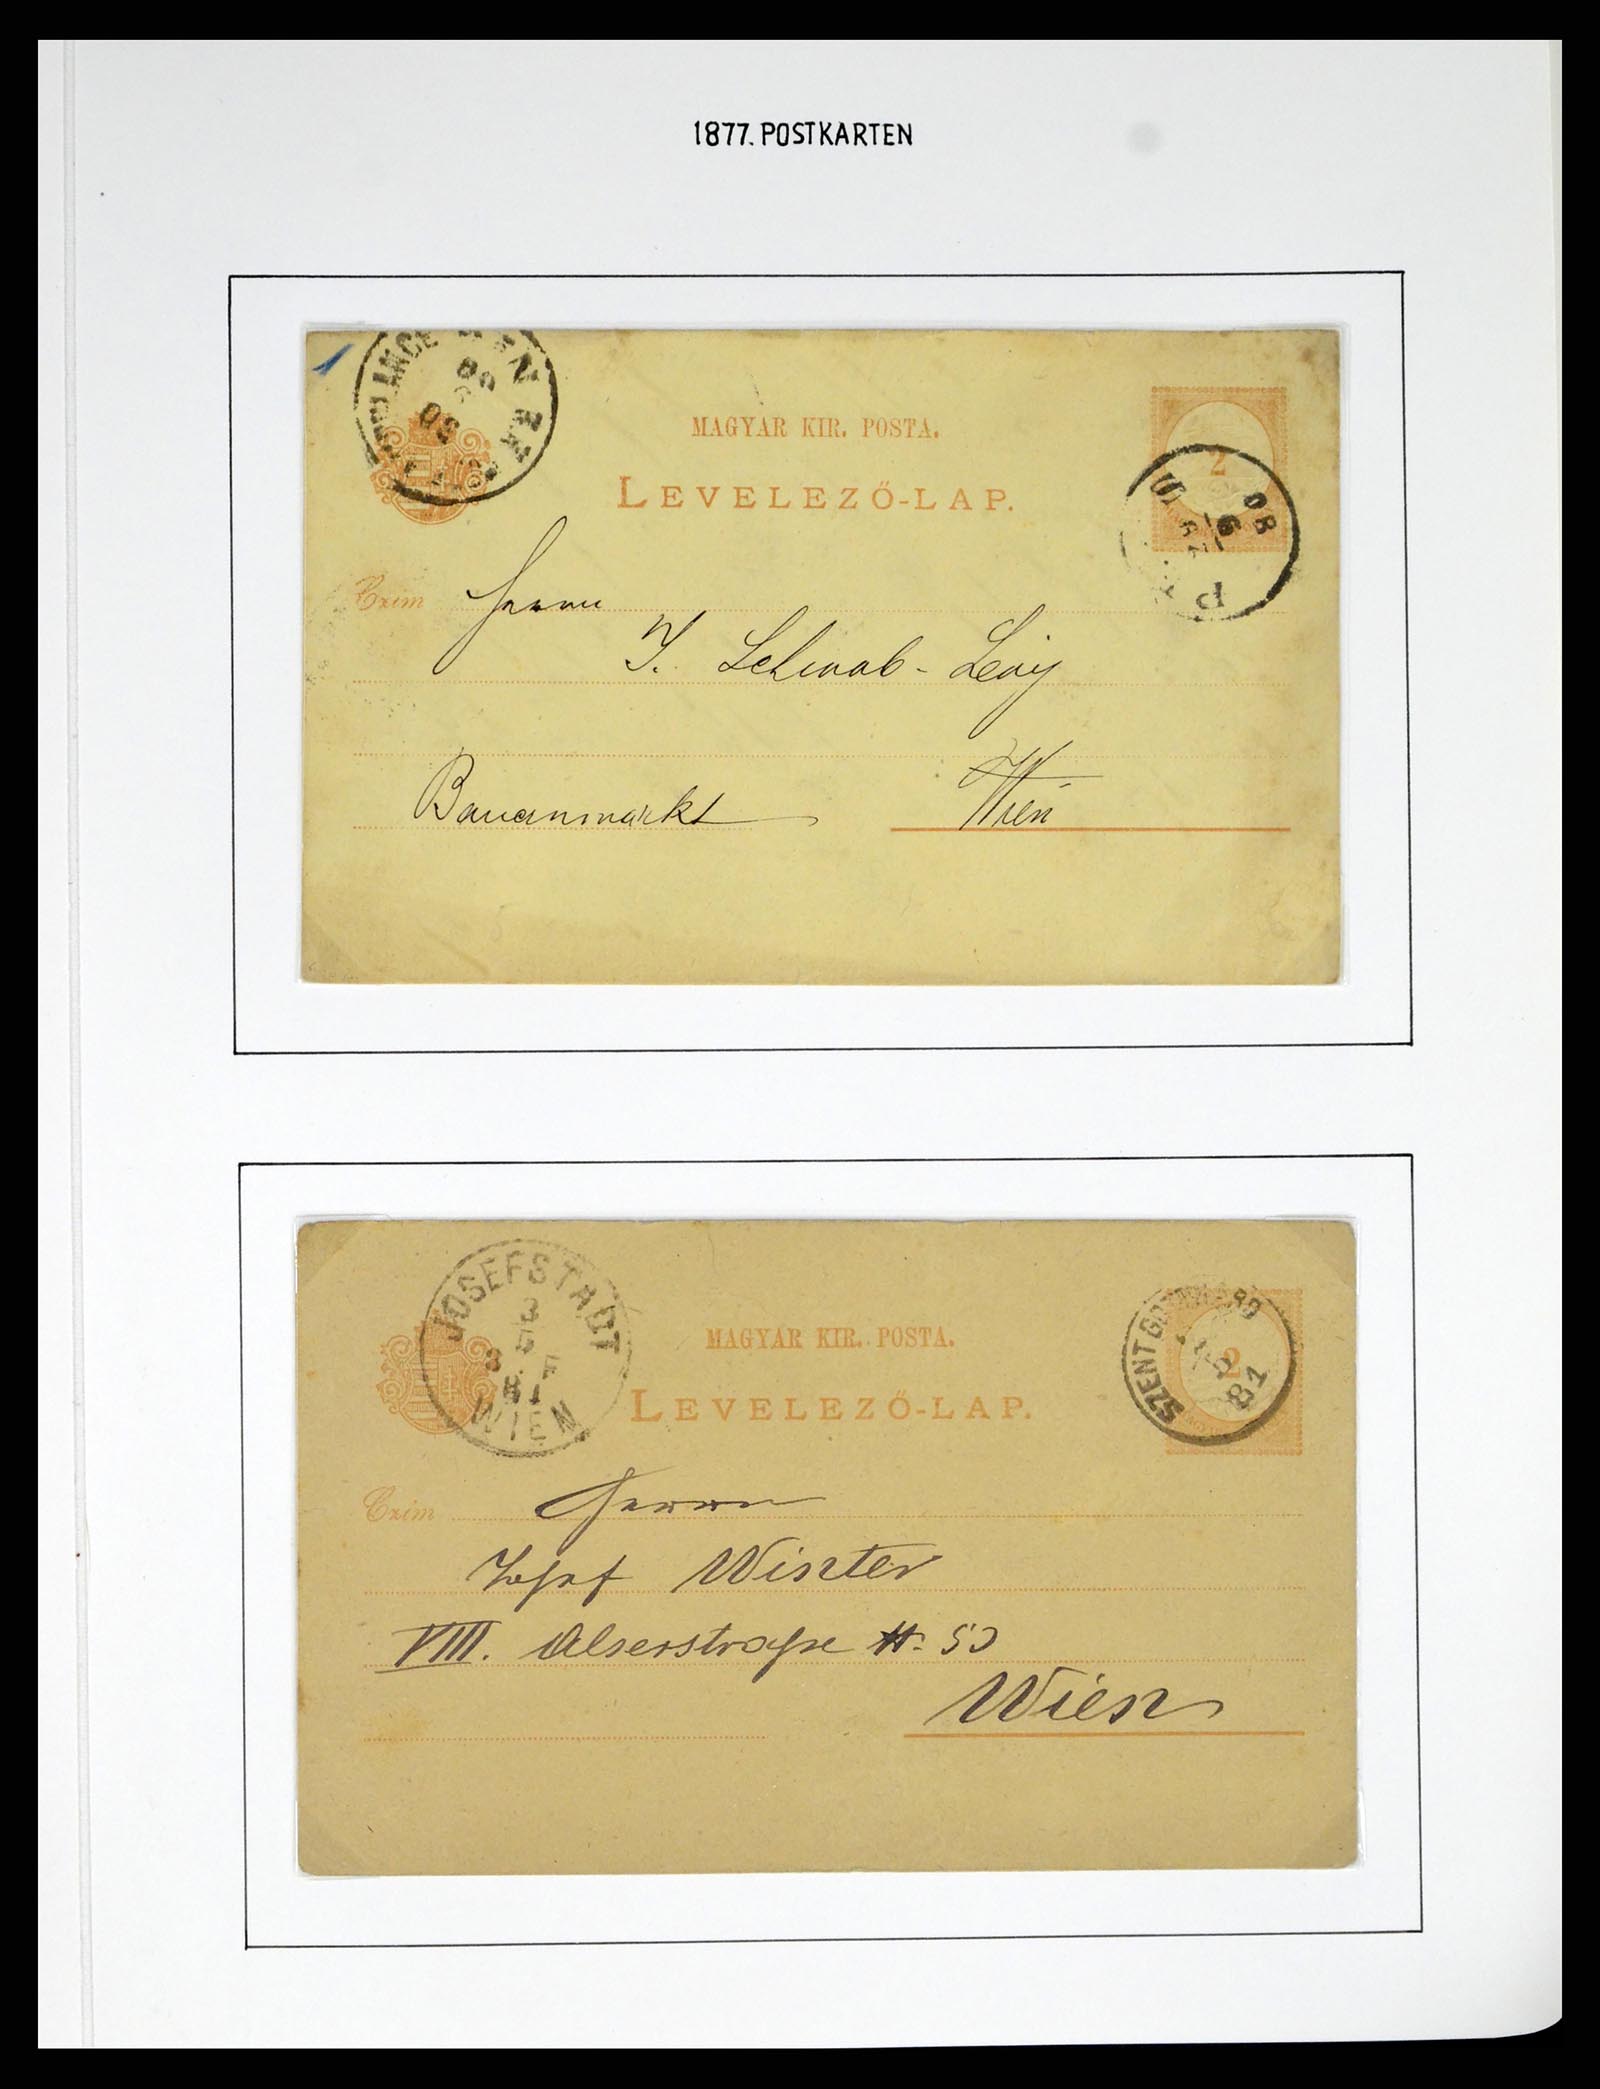 1877. POSTKARTEN
MAGYAR KIR. POSTA.
2
LEVELEZŐ-LAP.
Czim Herrn
J. Schwab-Levy
Bauernmarkt Wien
JOSEFSTADT
3
5
8 F
81
WIEN
MAGYAR KIR. POSTA.
81
2
LEVELEZŐ-LAP.
Czim Herrn
Josef Winter
VIII. Alserstraße
Wien